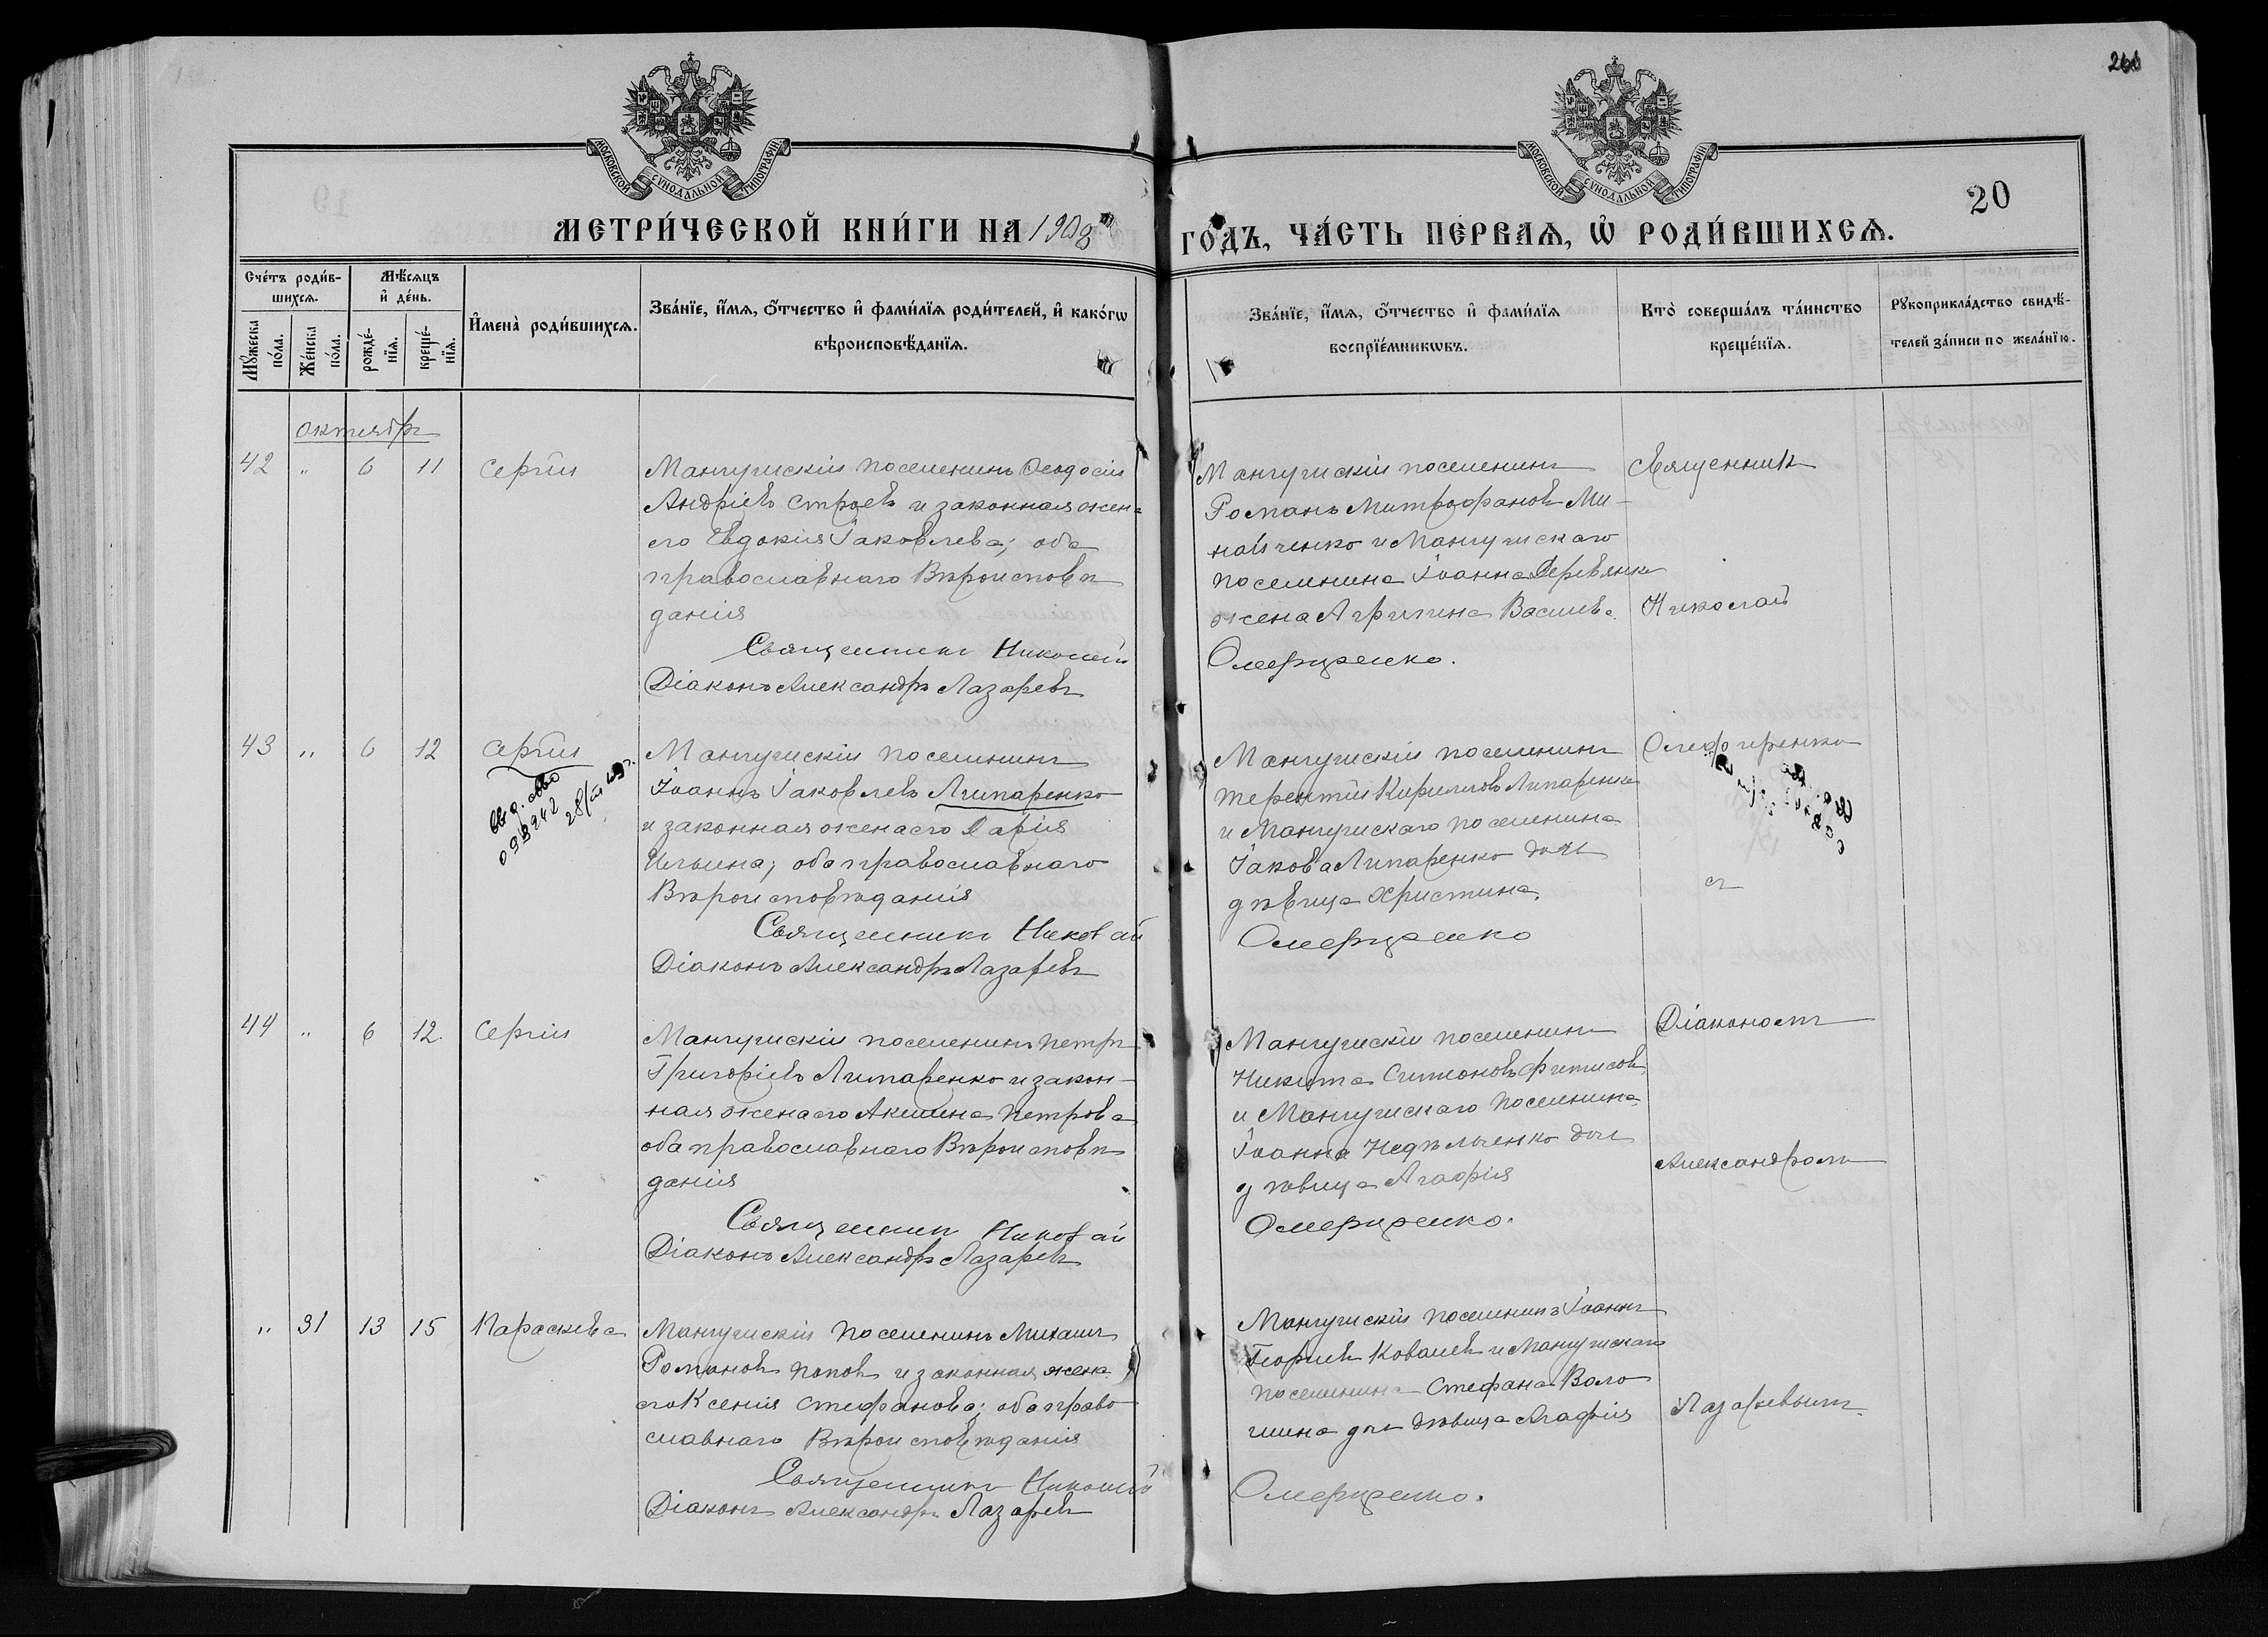 260
МОСКОВСКОЙ СѴНОДАЛЬНОЙ ТИПОГРАФІИ
МОСКОВСКОЙ СѴНОДАЛЬНОЙ ТИПОГРАФІИ
20
МЕТРИ́ЧЕСКОЙ КНИ́ГИ НА 1908 ГО́ДЪ, ЧА́СТЬ ПЕ́РВАѦ, Ѡ҆ РОДИ́ВШИХСѦ.
Сче́тъ роди́в-
шихсѧ.
Мꙋ́жеска по́ла.
Же́нска по́ла.
Мѣ́сѧцъ
и҆ де́нь.
рожде́-
нїѧ.
креще́-
нїѧ.
И҆мена̀ роди́вшихсѧ.
Зва́нїе, и҆́мѧ, ѻ҆́тчество и҆ фами́лїѧ роди́телей, и҆ како́гѡ
вѣроисповѣ́данїѧ.
Зва́нїе, и҆́мѧ, ѻ҆́тчество и҆ фами́лїѧ
воспрїе́мникѡвъ.
Кто̀ соверша́лъ та́инство
креще́нїѧ.
Рꙋкоприкла́дство свидѣ́-
телей за́писи по жела́нїю.
Октябрь
42 " 6 11 Сергій
Мангушскій поселенинъ Ѳеодосій
Андріевъ Строевъ и законная жена
его Евдокія Іаковлева; оба
православнаго Вѣроисповѣ
данія
Священникъ Николай
Діаконъ Александръ Лазаревъ
Мангушскій поселенинъ
Романъ Митрофановъ Ми-
найченко и Мангушскаго
поселенина Іоанна Деревянко
жена Агрипина Васильева.
Олефиренко.
Священник
Николай
43 " 6 12 Сергій
098242
Мангушскій поселенинъ
Іоаннъ Іаковлевъ Липаренко
и законная жена его Дарія
Ильина; оба православнаго
Вѣроисповѣданія
Священникъ Николай
Діаконъ Александръ Лазаревъ
Мангушскій поселенинъ
Терентій Кирилловъ Липаренко
и Мангушскаго поселенина
Іакова Липаренко дочь
дѣвица Христина.
Олефиренко
Олефиренко
съ
44 " 6 12 Сергій
Мангушскій поселенинъ Петръ
Григоріевъ Липаренко и закон-
ная жена его Акилина Петрова
оба православнаго Вѣроисповѣ
данія
Священникъ Николай
Діаконъ Александръ Лазаревъ
Мангушскій поселенинъ
Никита Симеоновъ Фитисовъ
и Мангушскаго поселенина
Іоанна Недѣльченко дочь
дѣвица Агафія
Олефиренко.
Діакономъ
Александромъ
" 31 13 15 Параскева
Мангушскій поселенинъ Михаилъ
Романовъ Поповъ и законная жена
его Ксенія Стефанова; оба право
славнаго Вѣроисповѣданія
Священникъ Николай
Діаконъ Александръ Лазаревъ
Мангушскій поселенинъ Іоаннъ
Георгіевъ Ковалевъ и Мангушскаго
поселенина Стефана Воло
шина дочь дѣвица Агафія
Олефиренко.
Лазаревымъ